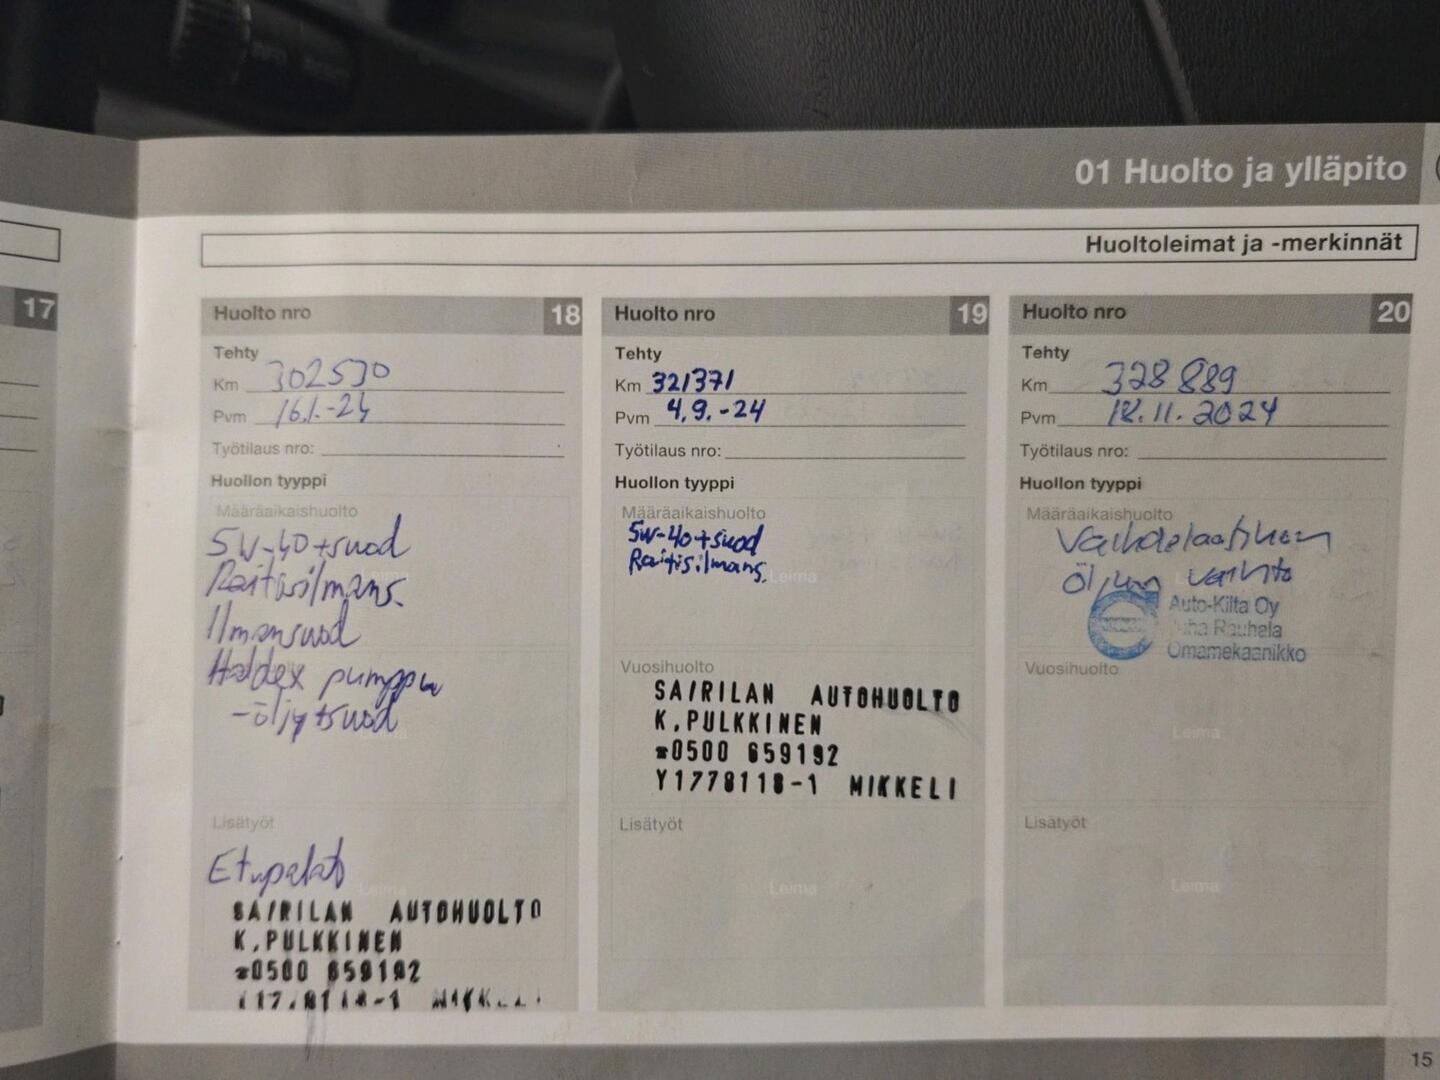 01 Huolto ja ylläpito
Huoltoleimat ja -merkinnät
17
Huolto nro 18
Tehty
Km 302530
Pvm 16.1.-24
Työtilaus nro:
Huollon tyyppi
Määräaikaishuolto
5W-40+suod
Raitisilmans.
Ilmansuod
Haldex pumppu
-öljy+suod
Leima
Lisätyöt
Etupalat
Leima
SAIRILAN AUTOHUOLTO
K.PULKKINEN
☎0500 659192
Huolto nro 19
Tehty
Km 321371
Pvm 4.9.-24
Työtilaus nro:
Huollon tyyppi
Määräaikaishuolto
5W-40+suod
Raitisilmans.
Leima
Vuosihuolto
SAIRILAN AUTOHUOLTO
K.PULKKINEN
☎0500 659192
Y1778118-1 MIKKELI
Lisätyöt
Leima
Huolto nro 20
Tehty
Km 328889
Pvm 18.11.2024
Työtilaus nro:
Huollon tyyppi
Määräaikaishuolto
Vaihdelaatikon
öljyn vaihto
Auto-Kilta Oy
Juha Rauhela
Omamekaanikko
Vuosihuolto
Leima
Lisätyöt
Leima
15